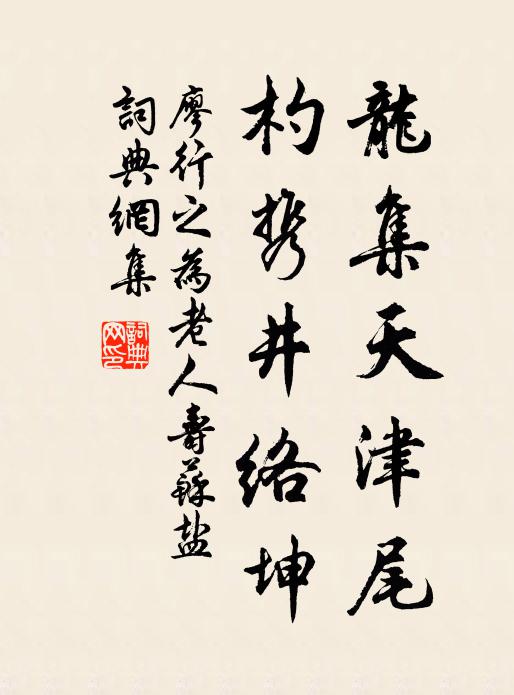 龍集天津尾
杓携井絡坤
廖行之為老人壽蘇盐
詞典網集
詞典網印